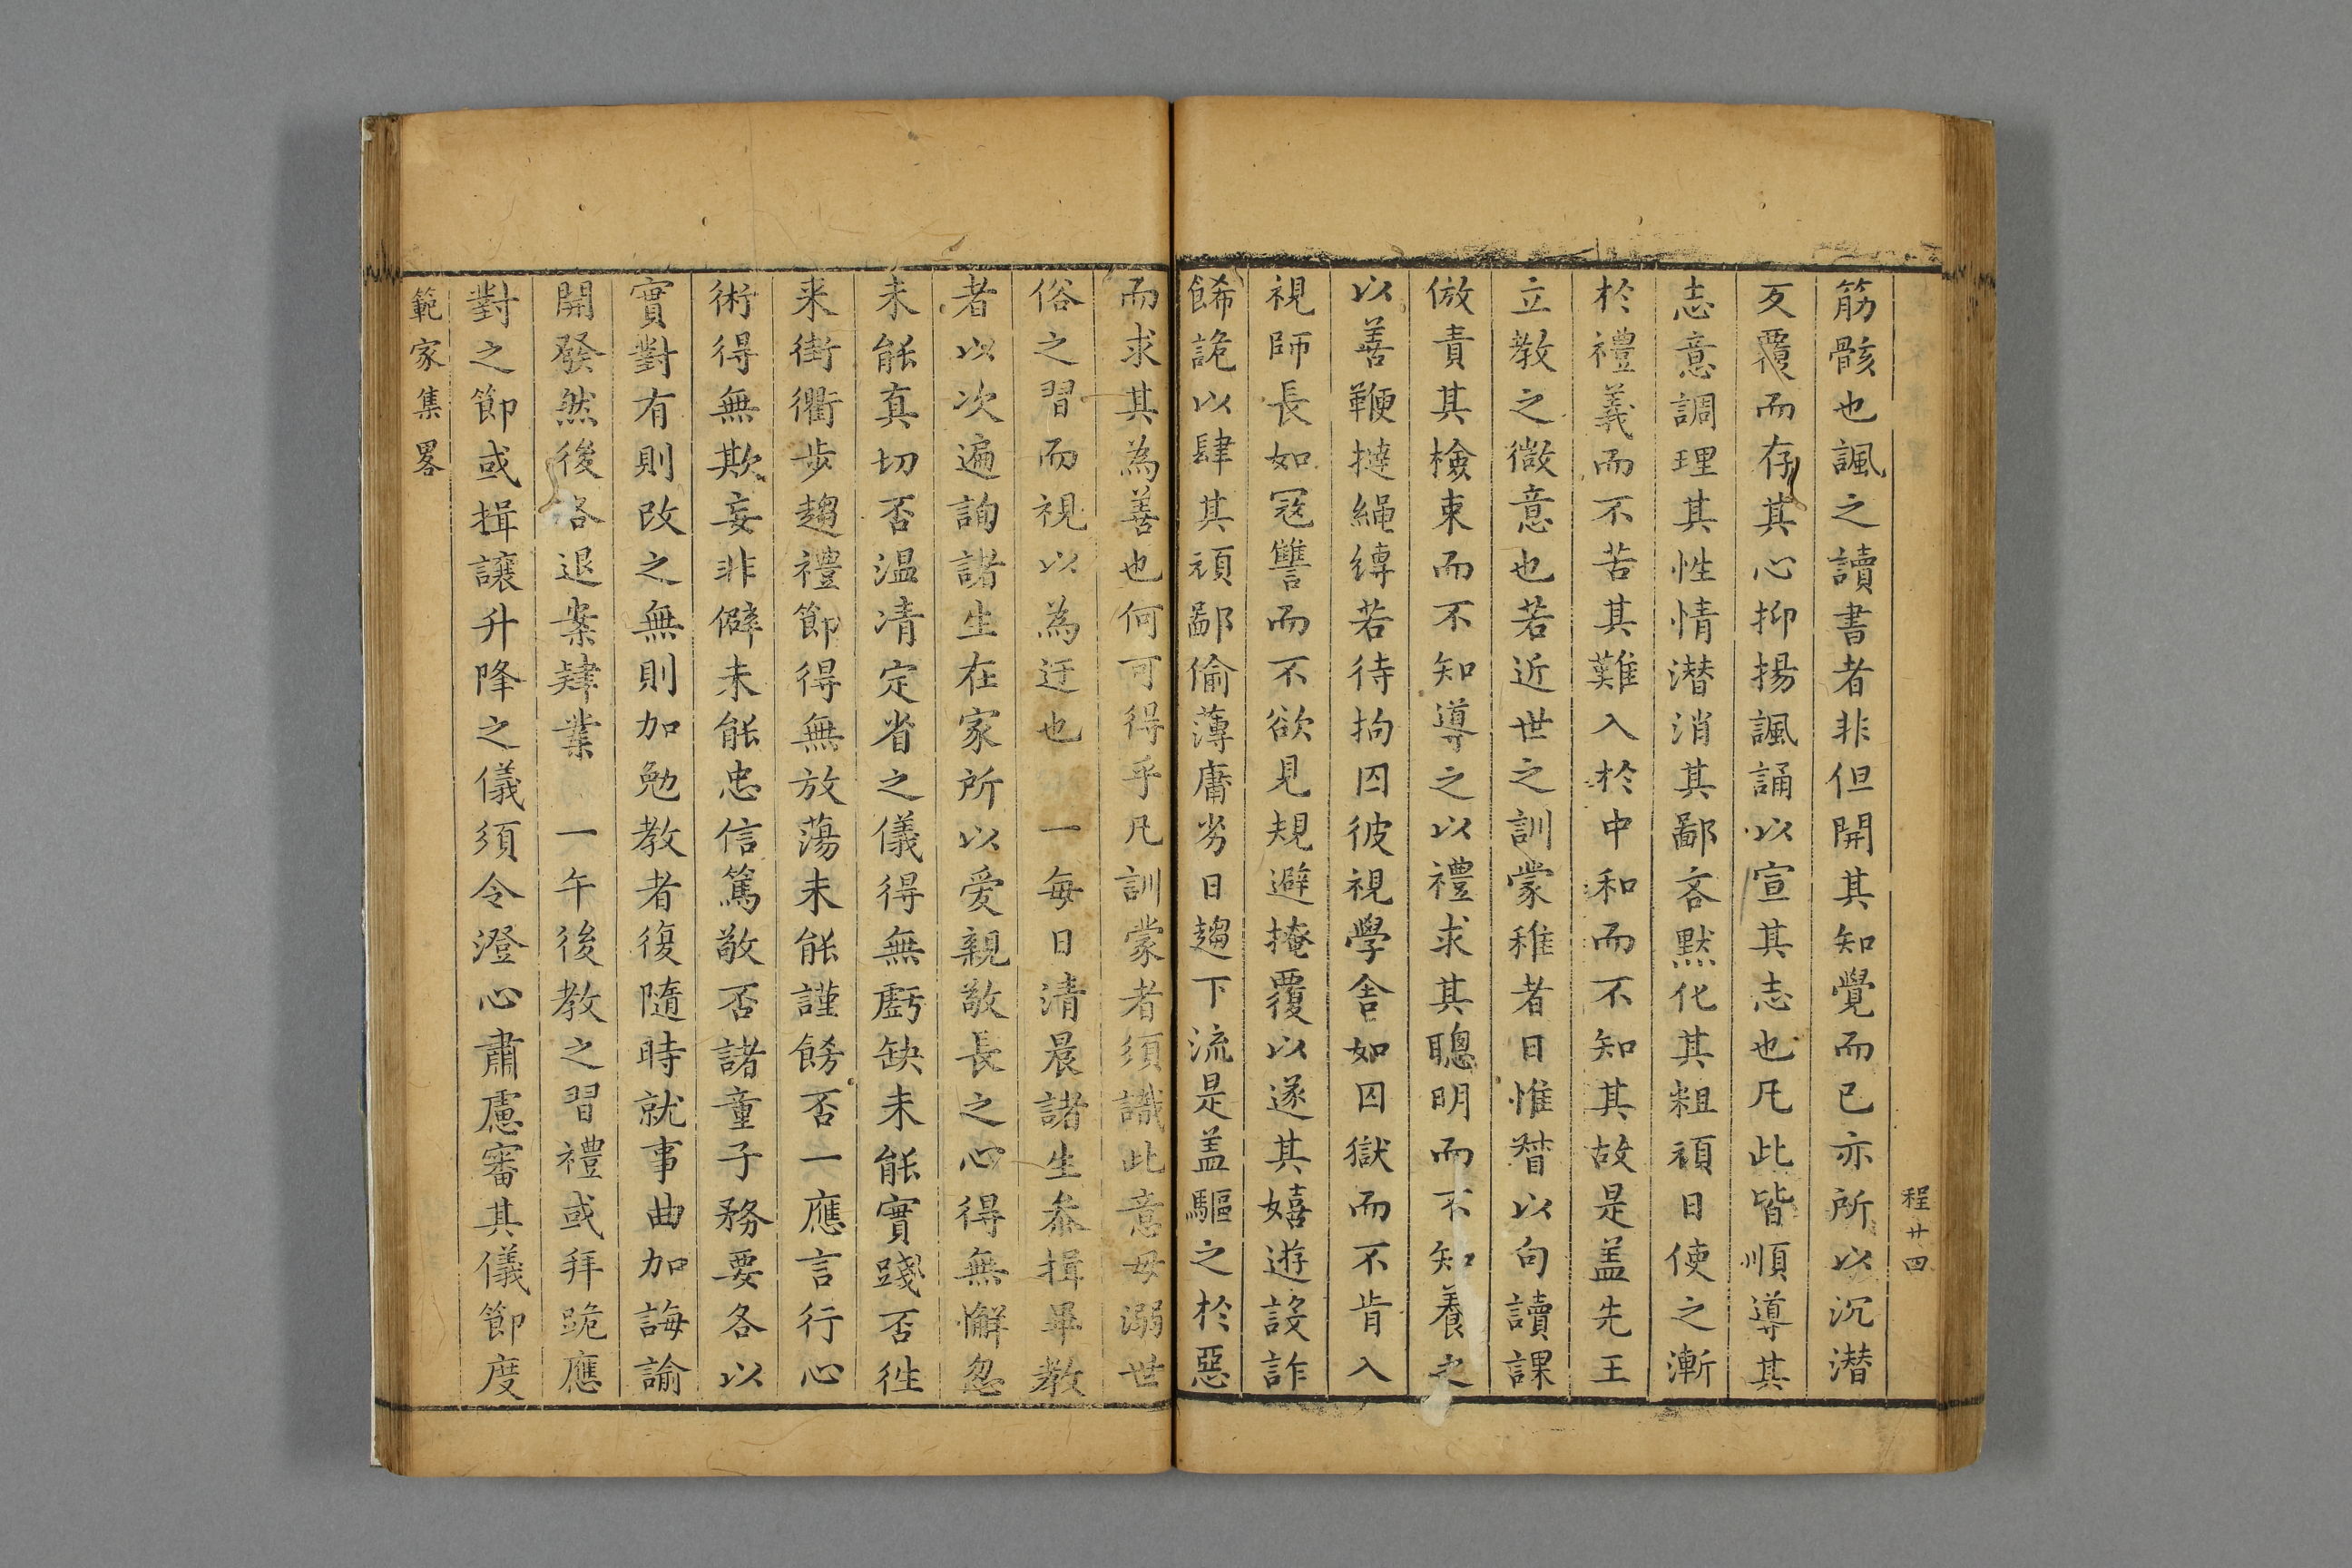 程廿四
筋骸也諷之讀書者非但開其知覺而已亦所以沉潜
反覆而存其心抑揚諷誦以宣其志也凡此皆順導其
志意調理其性情潜消其鄙吝黙化其粗頑日使之漸
於禮義而不苦其難入於中和而不知其故是盖先王
立教之微意也若近世之訓蒙稚者日惟督以句讀課
倣責其檢束而不知導之以禮求其聰明而不知養之
以善鞭撻繩縛若待拘囚彼視學舍如囚獄而不肯入
視師長如冦讐而不欲見規避掩覆以遂其嬉遊設詐
餙詭以肆其頑鄙偷薄庸劣日趨下流是盖驅之於惡
而求其為善也何可得乎凡訓蒙者須識此意毋溺世
俗之習而視以為迂也 一每日清晨諸生叅揖畢教
者以次遍詢諸生在家所以愛親敬長之心得無懈忽
未能真切否温凊定省之儀得無虧缺未能實踐否徃
来街衢步趨禮節得無放蕩未能謹餝否一應言行心
術得無欺妄非僻未能忠信篤敬否諸童子務要各以
實對有則改之無則加勉教者復隨時就事曲加誨諭
開發然後各退案肄業 一午後教之習禮或拜跪應
對之節或揖讓升降之儀須令澄心肅慮審其儀節度
範家集畧